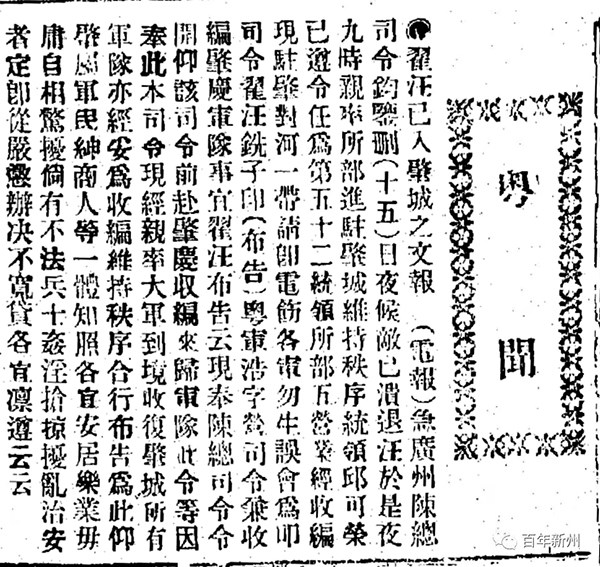 粤聞
翟汪已入肇城之文報 (電報)急廣州陳總
司令鈞鑒删(十五)日夜候敵已潰退汪於是夜
九時親率所部進駐肇城維持秩序統領邱可榮
已遵令任爲第五十二統領所部五營業經收編
現駐肇對河一帶請卽電飭各軍勿生誤會爲叩
司令翟汪銑子印(布告)粵軍浩字營司令兼收
編肇慶軍隊事宜翟汪布告云現奉陳總司令令
開仰該司令前赴肇慶收編來歸軍隊此令等因
奉此本司令現經親率大軍到境收復肇城所有
軍隊亦經妥爲收編維持秩序合行布告爲此仰
肇屬軍民紳商人等一體知照各宜安居樂業毋
庸自相驚擾倘有不法兵士姦淫搶掠擾亂治安
者定卽從嚴懲辦决不寬貸各宜凛遵云云
百年新州